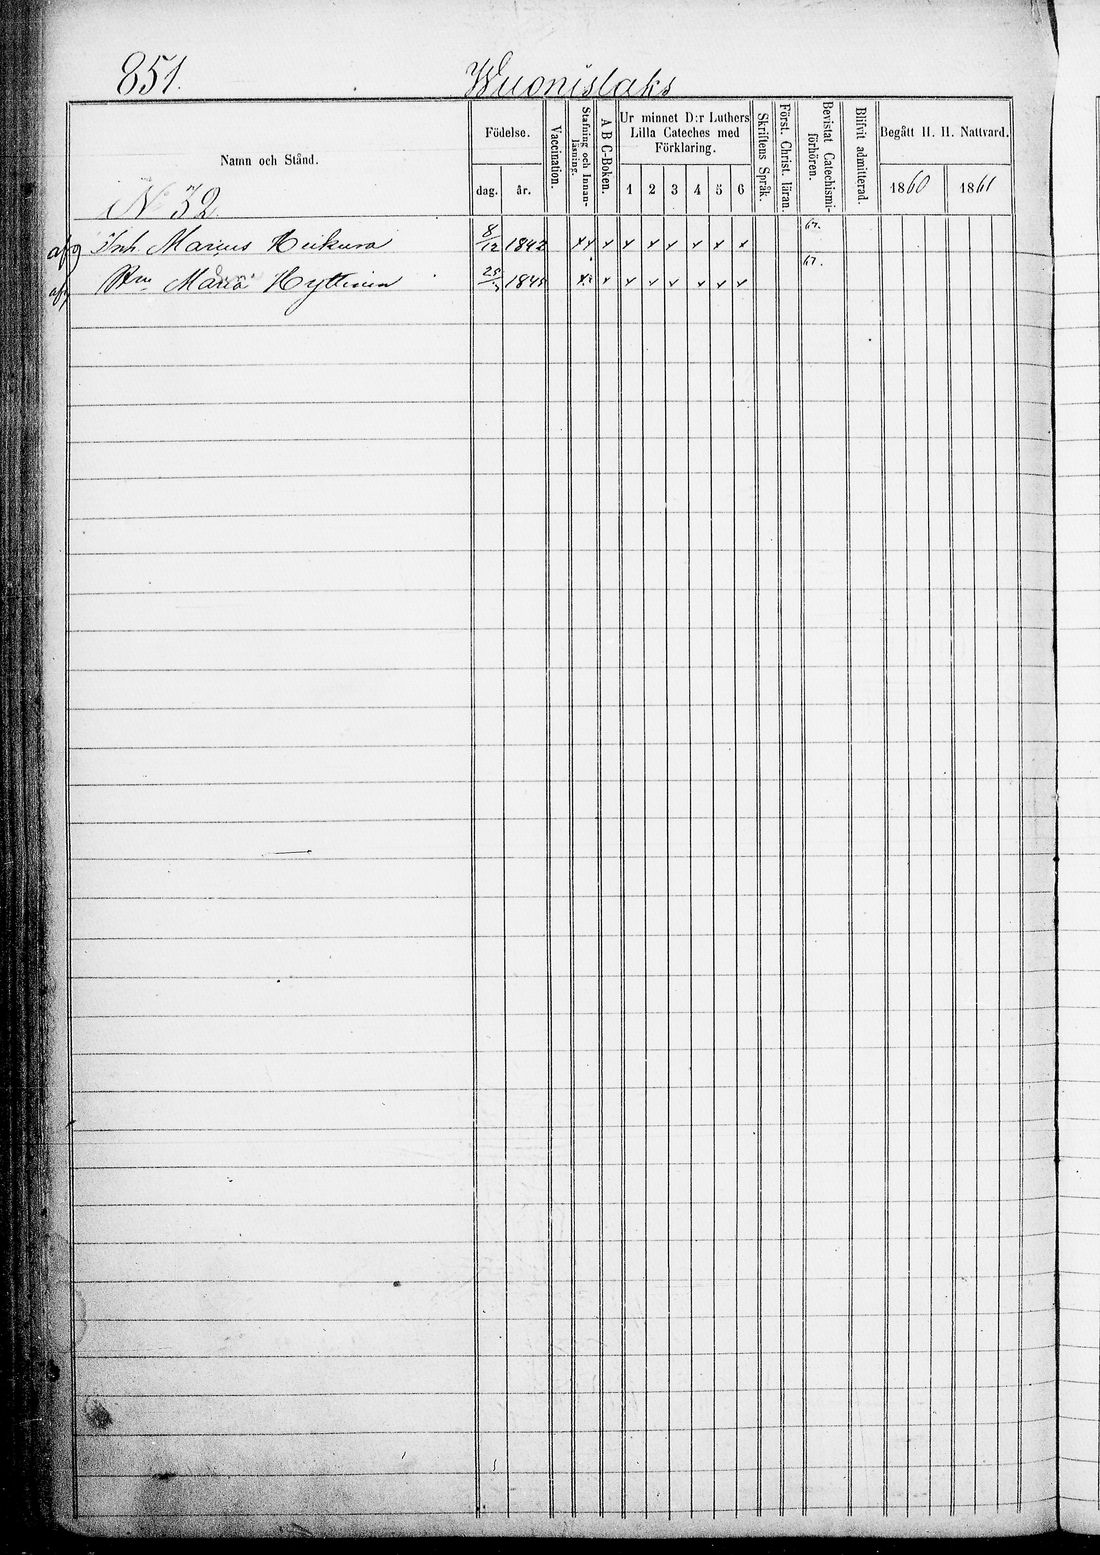 851.
Wuonislaks
Namn och Stånd.
Födelse.
dag. år.
Vaccination.
Stafning och Innan-läsning.
A B C-Boken.
Ur minnet D:r Luthers
Lilla Cateches med
Förklaring.
1 2 3 4 5 6
Skriftens Språk.
Först. Christ. läran.
Bevistat Catechismi-förhören.
Blifvit admitterad.
Begått H. H. Nattvard.
1860 1861
N 32
afg Inh. Marcus Heikura 8/12 1842 x x x x x x x x x 67.
afg Maria Hyttinen 1845 x x x x x x x x 67.